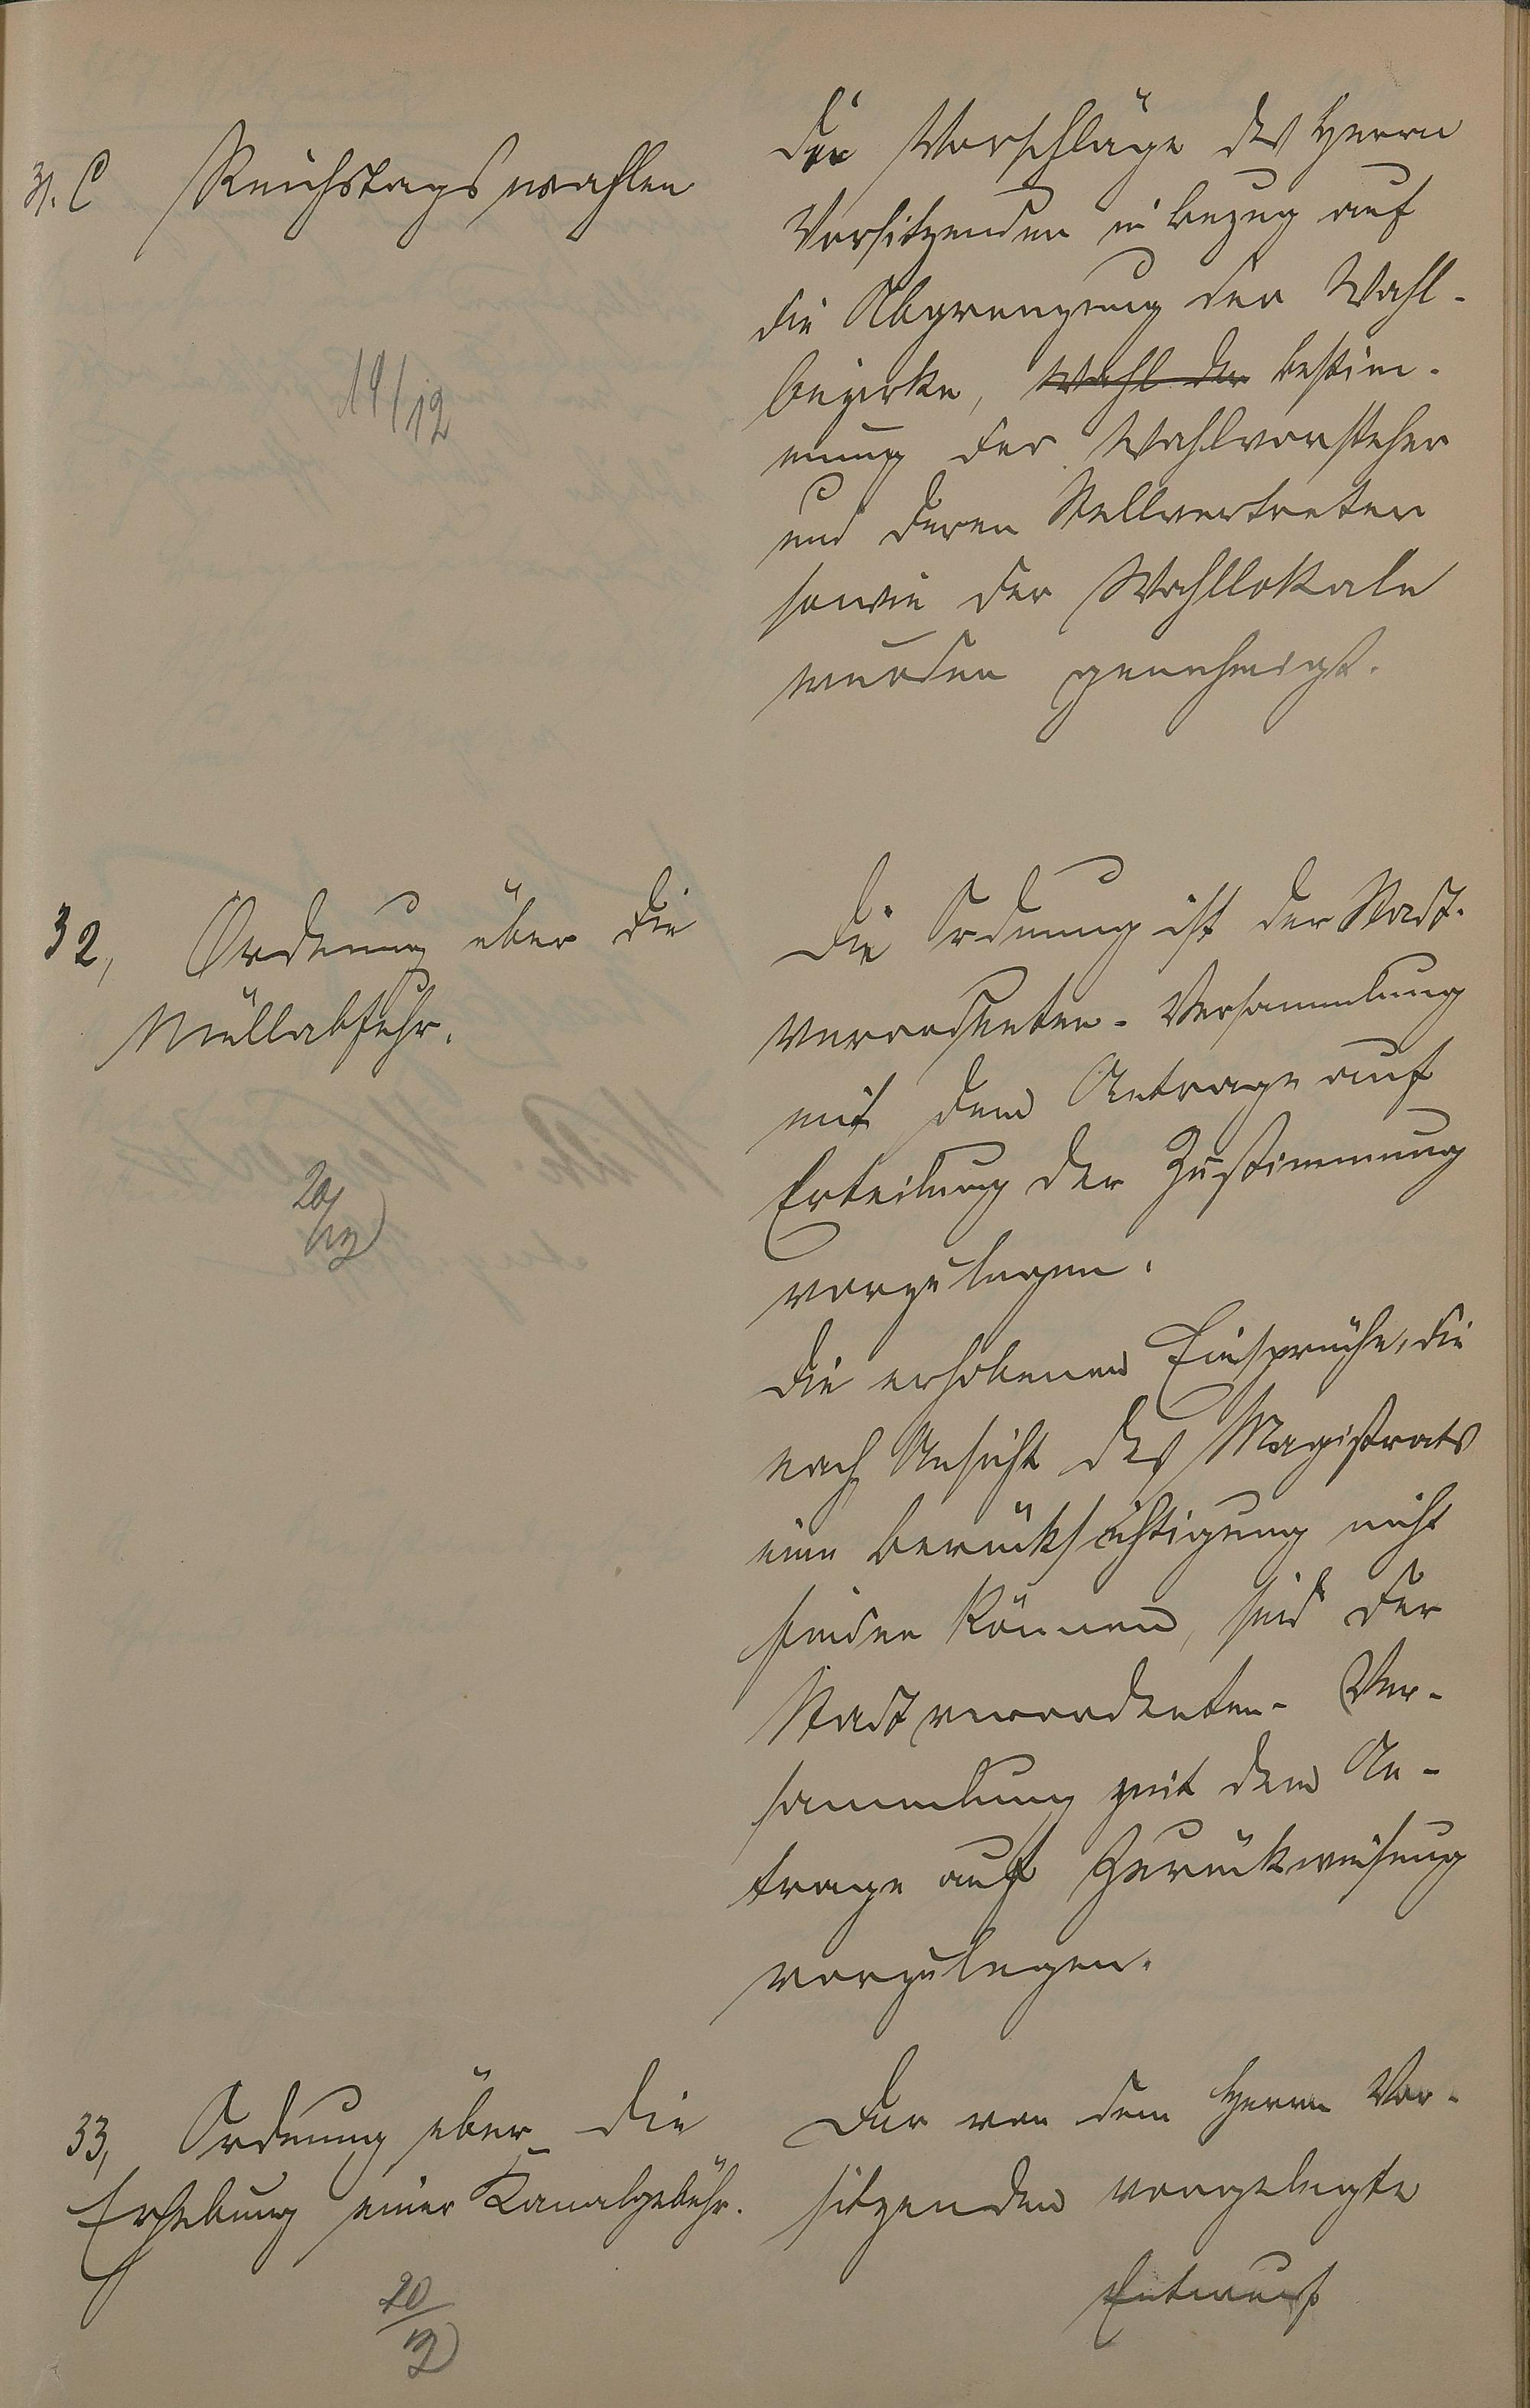 31. C Reichstagswahlen
19/12
Die Vorschläge des Herrn
Vorsitzenden in Bezug auf
die Abgrenzung der Wahl-
bezirke, Wahl der Bestim-
mung der Wahlvorsteher
und deren Stellvertreter
sowie der Wahllokale
wurden genehmigt.
32, Ordnung über die
Müllabfuhr.
20/12
Die Ordnung ist der Stadt-
verordneten-Versammlung
mit dem Antrage auf
Erteilung der Zustimmung
vorzulegen.
Die erhobenen Einsprüche, die
nach Ansicht des Magistrats
eine Berücksichtigung nicht
finden können, sind der
Stadtverordneten-Ver-
sammlung mit dem An-
trage auf Zurückweisung
vorzulegen.
33, Ordnung über die
Erhebung einer Kanalgebühr.
20/12
Der von dem Herrn Vor-
sitzenden vorgelegte
Entwurf